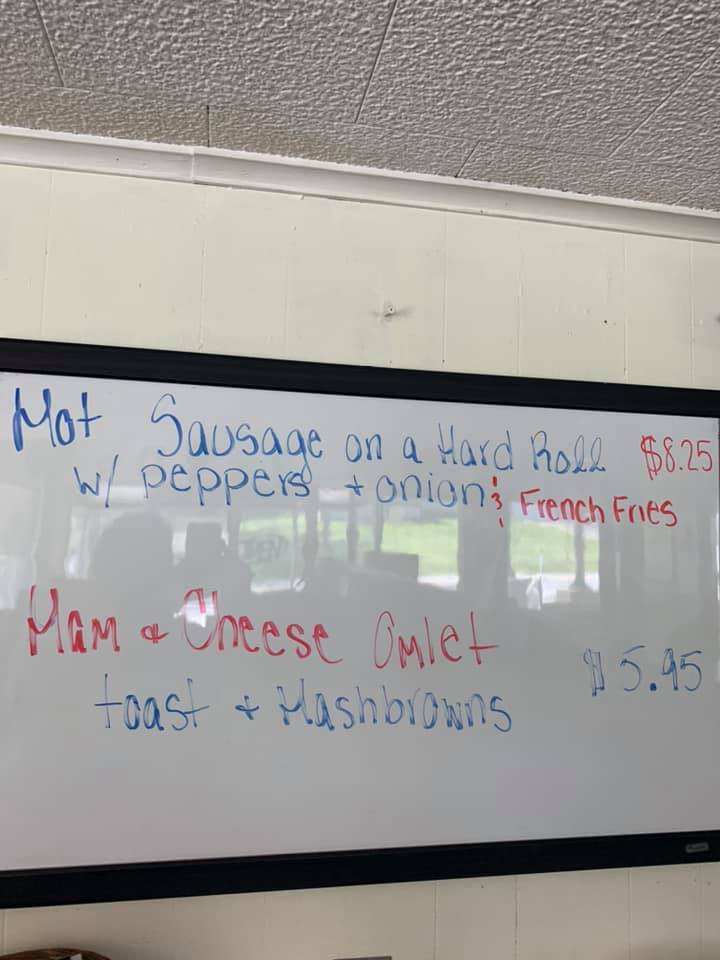 Hot Sausage on a Hard Roll $8.25
w/ peppers + onion & French Fries
Ham & Cheese Omlet
$5.95
toast + Hashbrowns